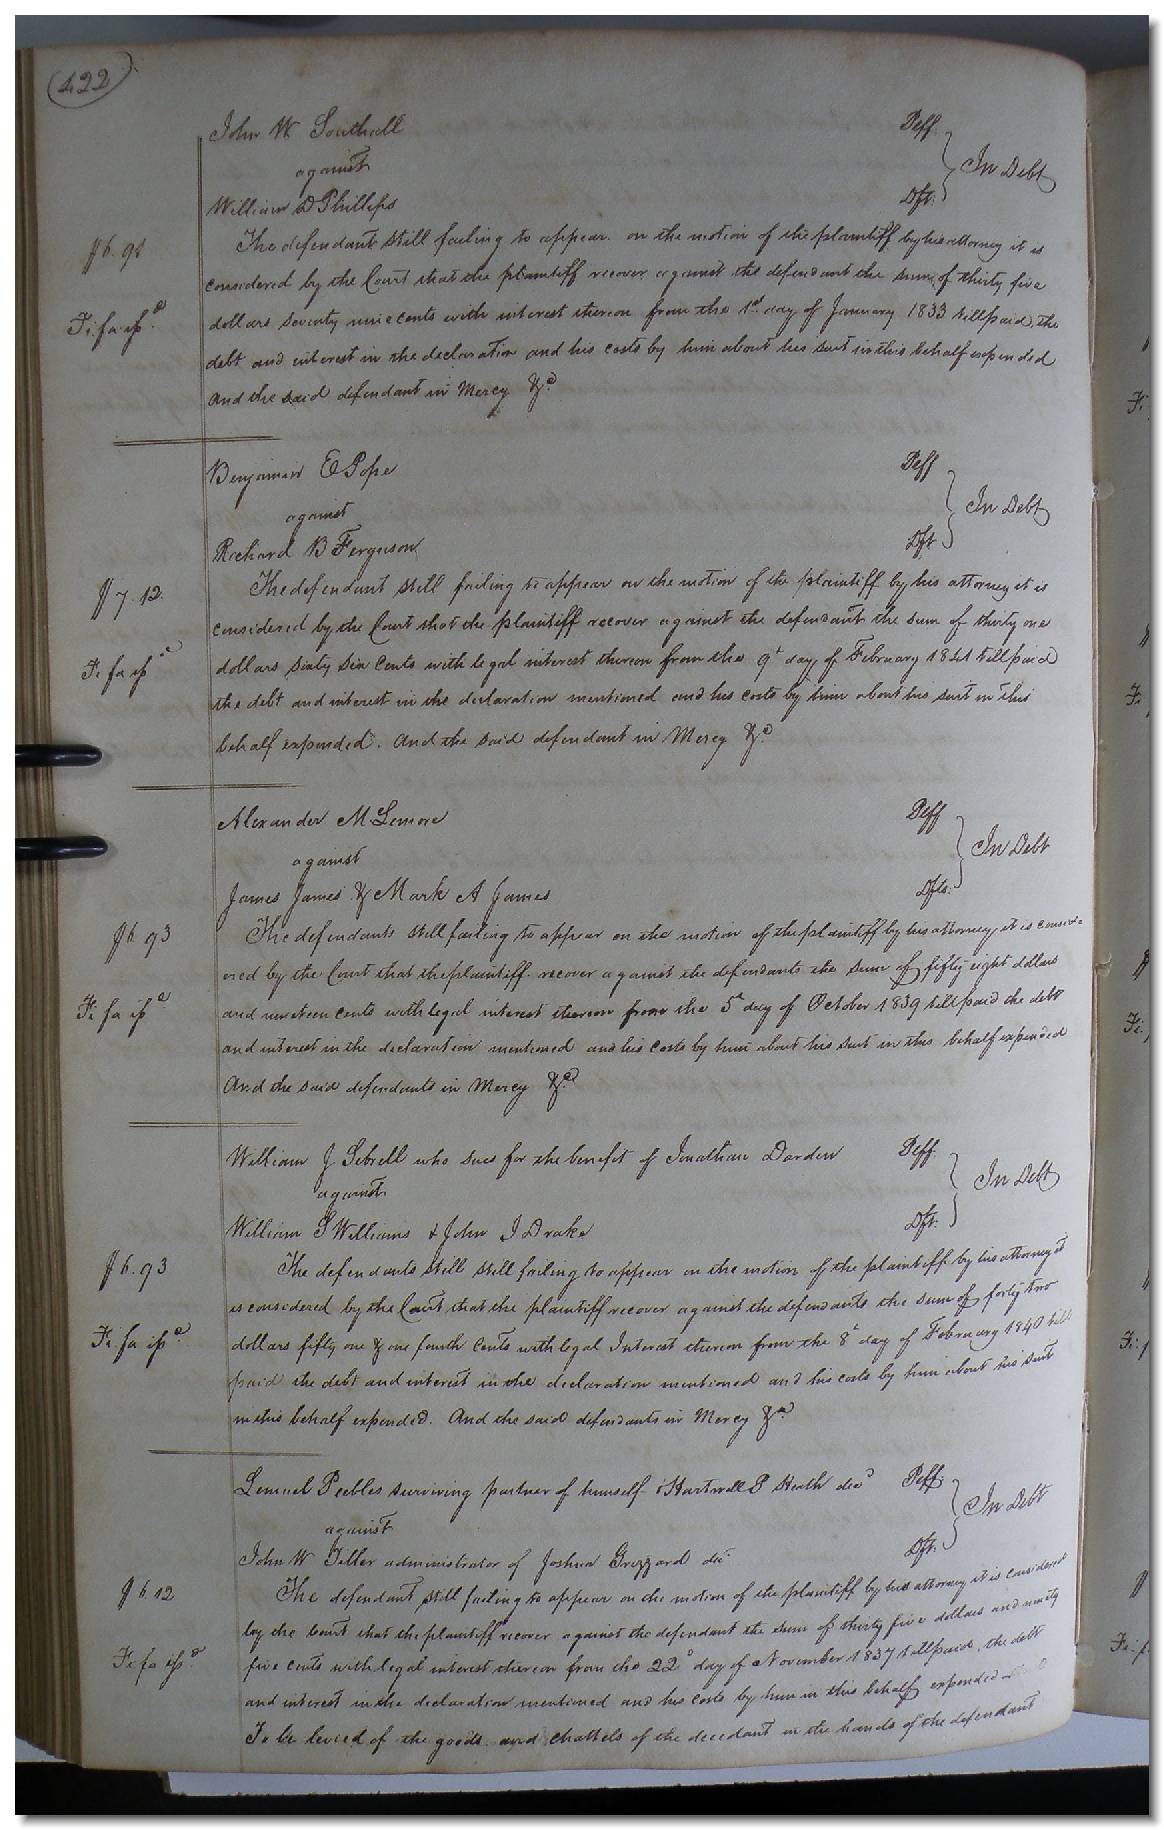 422
John W Southall Plff
against In Debt
William D Phillips Dft.
The defendant still failing to appear. on the motion of the plaintiff by his attorney it is
$6.98
considered by the Court that the plaintiff recover against the defendant the sum of thirty five
dollars seventy nine cents with interest thereon from the 1st day of January 1833 till paid, the
Fi. fa isd.
debt and interest in the declaration and his costs by him about his suit in this behalf expended
And the said defendant in Mercy &c
Benjamin E Pope Plff
against In Debt
Richard B Ferguson Dft
The defendant still failing to appear on the motion of the plaintiff by his attorney it is
$7.12
considered by the Court that the plaintiff recover against the defendant the sum of thirty one
dollars sixty six Cents with legal interest thereon from the 9th day of February 1841 till paid
Fi fa isd
the debt and interest in the declaration mentioned and his costs by him about his suit in this
behalf expended. And the said defendant in Mercy &c
Alexander McLemore Plff
against In Debt
James James & Mark A James Dfts.
The defendants still failing to appear on the motion of the plaintiff by his attorney, it is consid-
$6.93
ered by the Court that the plaintiff recover against the defendants the sum of fifty eight dollars
and nineteen cents with legal interest thereon from the 5th day of October 1839 till paid the debt
Fi fa isd
and interest in the declaration mentioned and his costs by him about his suit in this behalf expended
And the said defendants in Mercy &c
William J Sebrell who sues for the benefit of Jonathan Darden Plff.
against In Debt
William S Williams & John J Drake Dft.
The defendants still still failing to appear on the motion of the plaintiff by his attorney it
$6.93
is considered by the Court that the plaintiff recover against the defendants the sum of forty two
dollars fifty one & one fourth Cents with legal Interest thereon from the 8th day of February 1840 till
Fi. fa isd
paid the debt and interest in the declaration mentioned and his costs by him about his suit
in this behalf expended. And the said defendants in Mercy &c
Lemuel Peebles surviving partner of himself & Hartwell P Heath decd Plff.
against In Debt
John W Tiller administrator of Joshua Grizzard dec. Dft.
The defendant still failing to appear on the motion of the plaintiff by his attorney it is considered
$6.12
by the Court that the plaintiff recover against the defendant the sum of thirty five dollars and ninety
five cents with legal interest thereon from the 22d day of November 1837 till paid, the debt
Fi fa isd.
and interest in the declaration mentioned and his costs by him in this behalf expended
To be levied of the goods and chattels of the decedant in the hands of the defendant